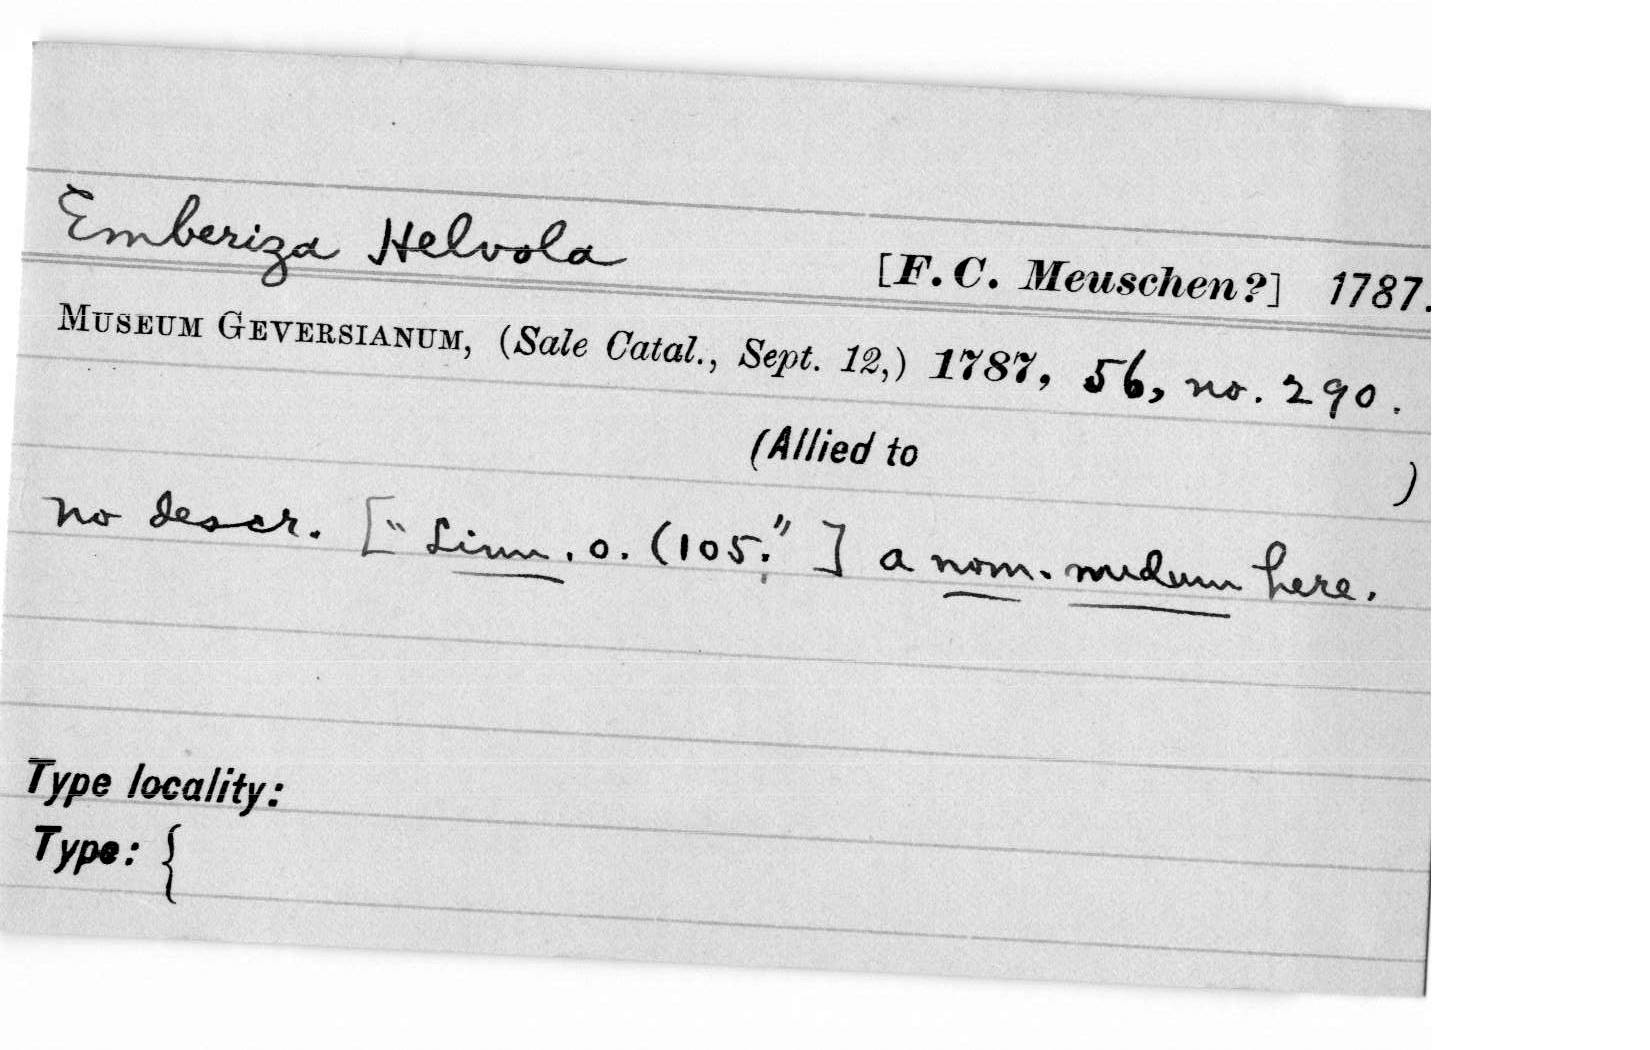 Emberiza Helvola [F. C. Meuschen?] 1787.
MUSEUM GEVERSIANUM, (Sale Catal., Sept. 12,) 1787, 56, no. 290.
(Allied to )
no descr. ["Linn. o. (105."] a nom. nudum here.
Type locality:
Type: {